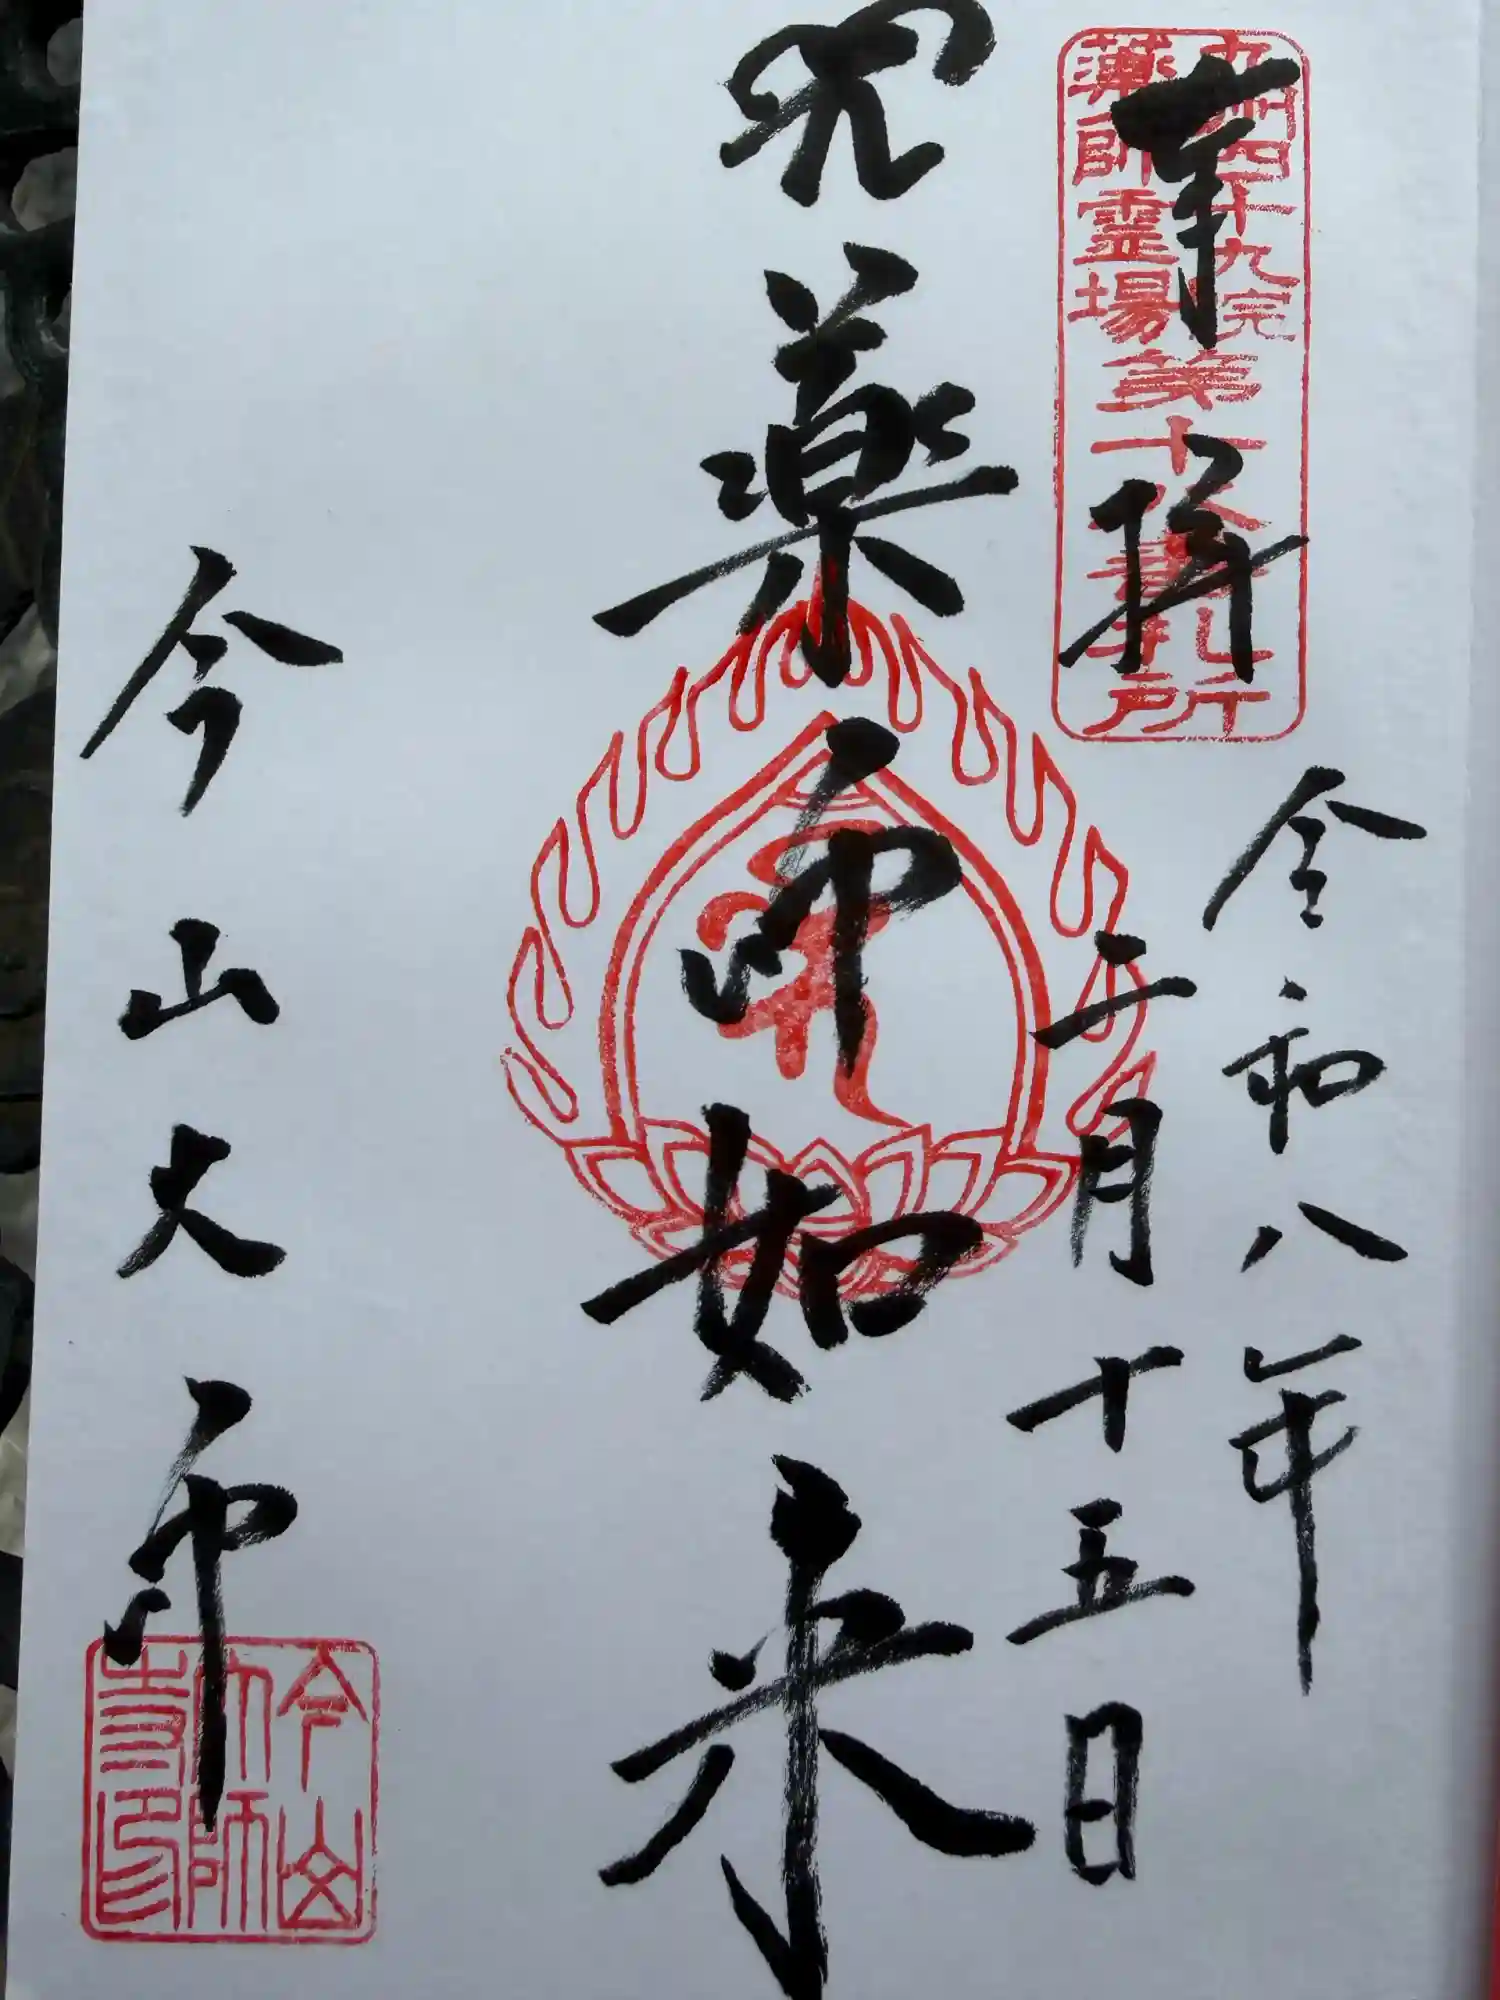 奉拝
九州四十九院
薬師霊場
第十八番札所
令和八年
二月十五日
薬師如来
今山大師
今山
大師
寺印